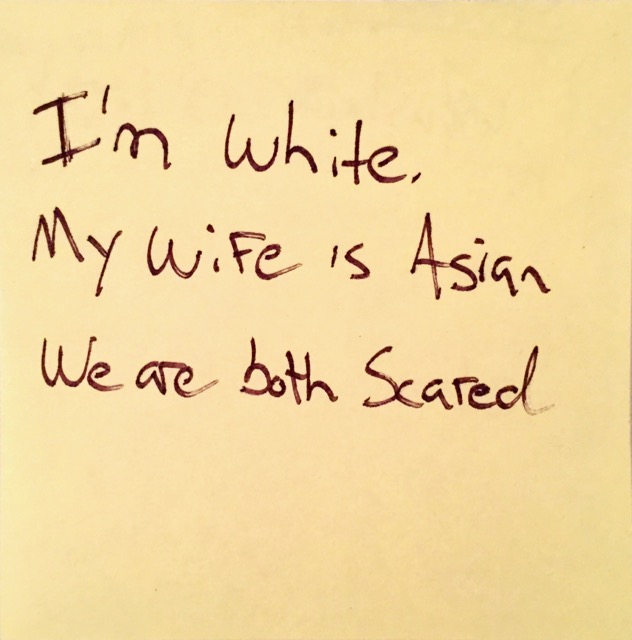 I'm White.
My Wife is Asian
We are both Scared